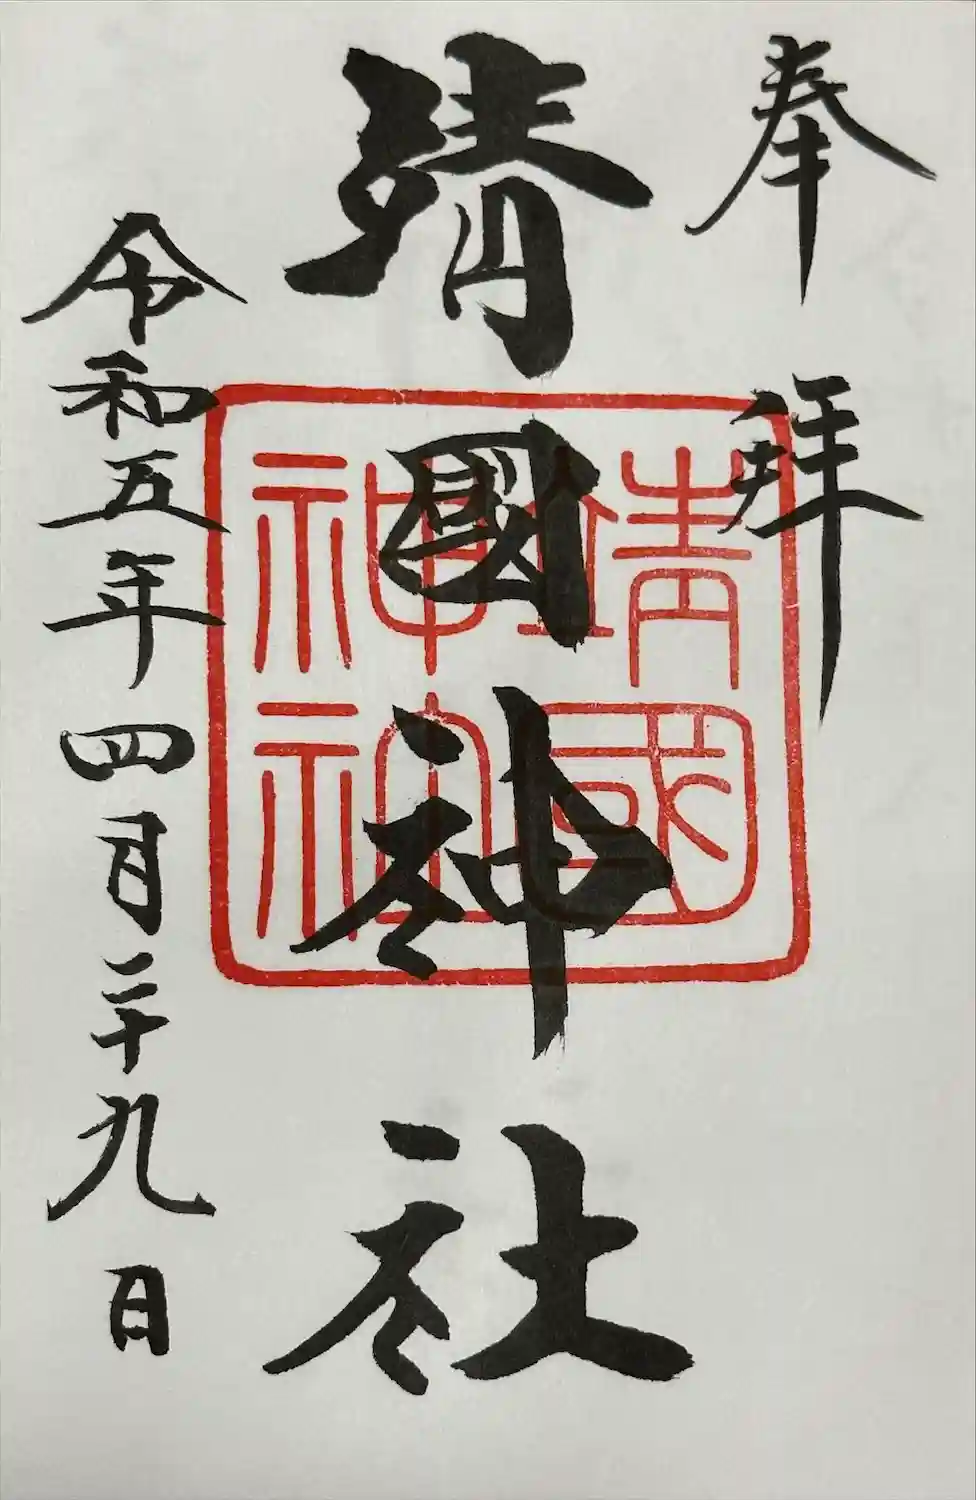 奉拝
靖國神社
令和五年四月二十九日
靖國
神社